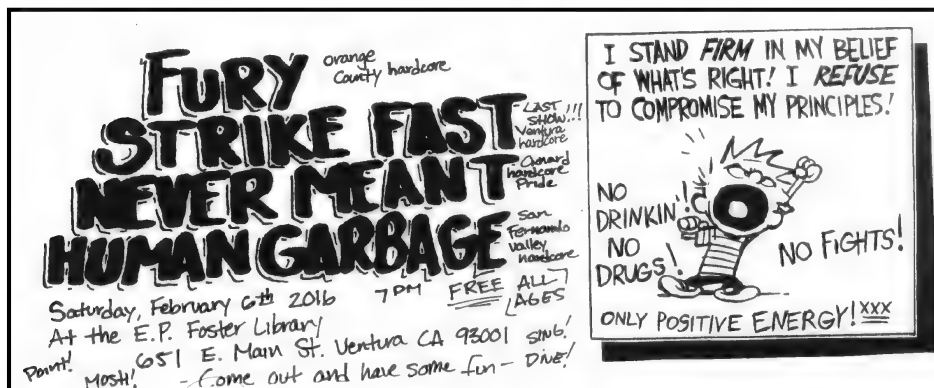 FURY
orange
County hardcore
STRIKE FAST
LAST
SHOW!!!
Ventura
hardcore
NEVER MEANT
Oxnard
hardcore
Pride
HUMAN GARBAGE
San
Fernando
Valley
hardcore
Saturday, February 6th 2016 7PM FREE ALL
AGES
At the E.P. Foster Library
651 E. Main St. Ventura CA 93001
SING!
Point!
MOSH!
- Come out and have some fun -
DIVE!
I STAND FIRM IN MY BELIEF
OF WHAT'S RIGHT! I REFUSE
TO COMPROMISE MY PRINCIPLES!
NO
DRINKIN'!
NO
DRUGS!
NO FIGHTS!
ONLY POSITIVE ENERGY! XXX